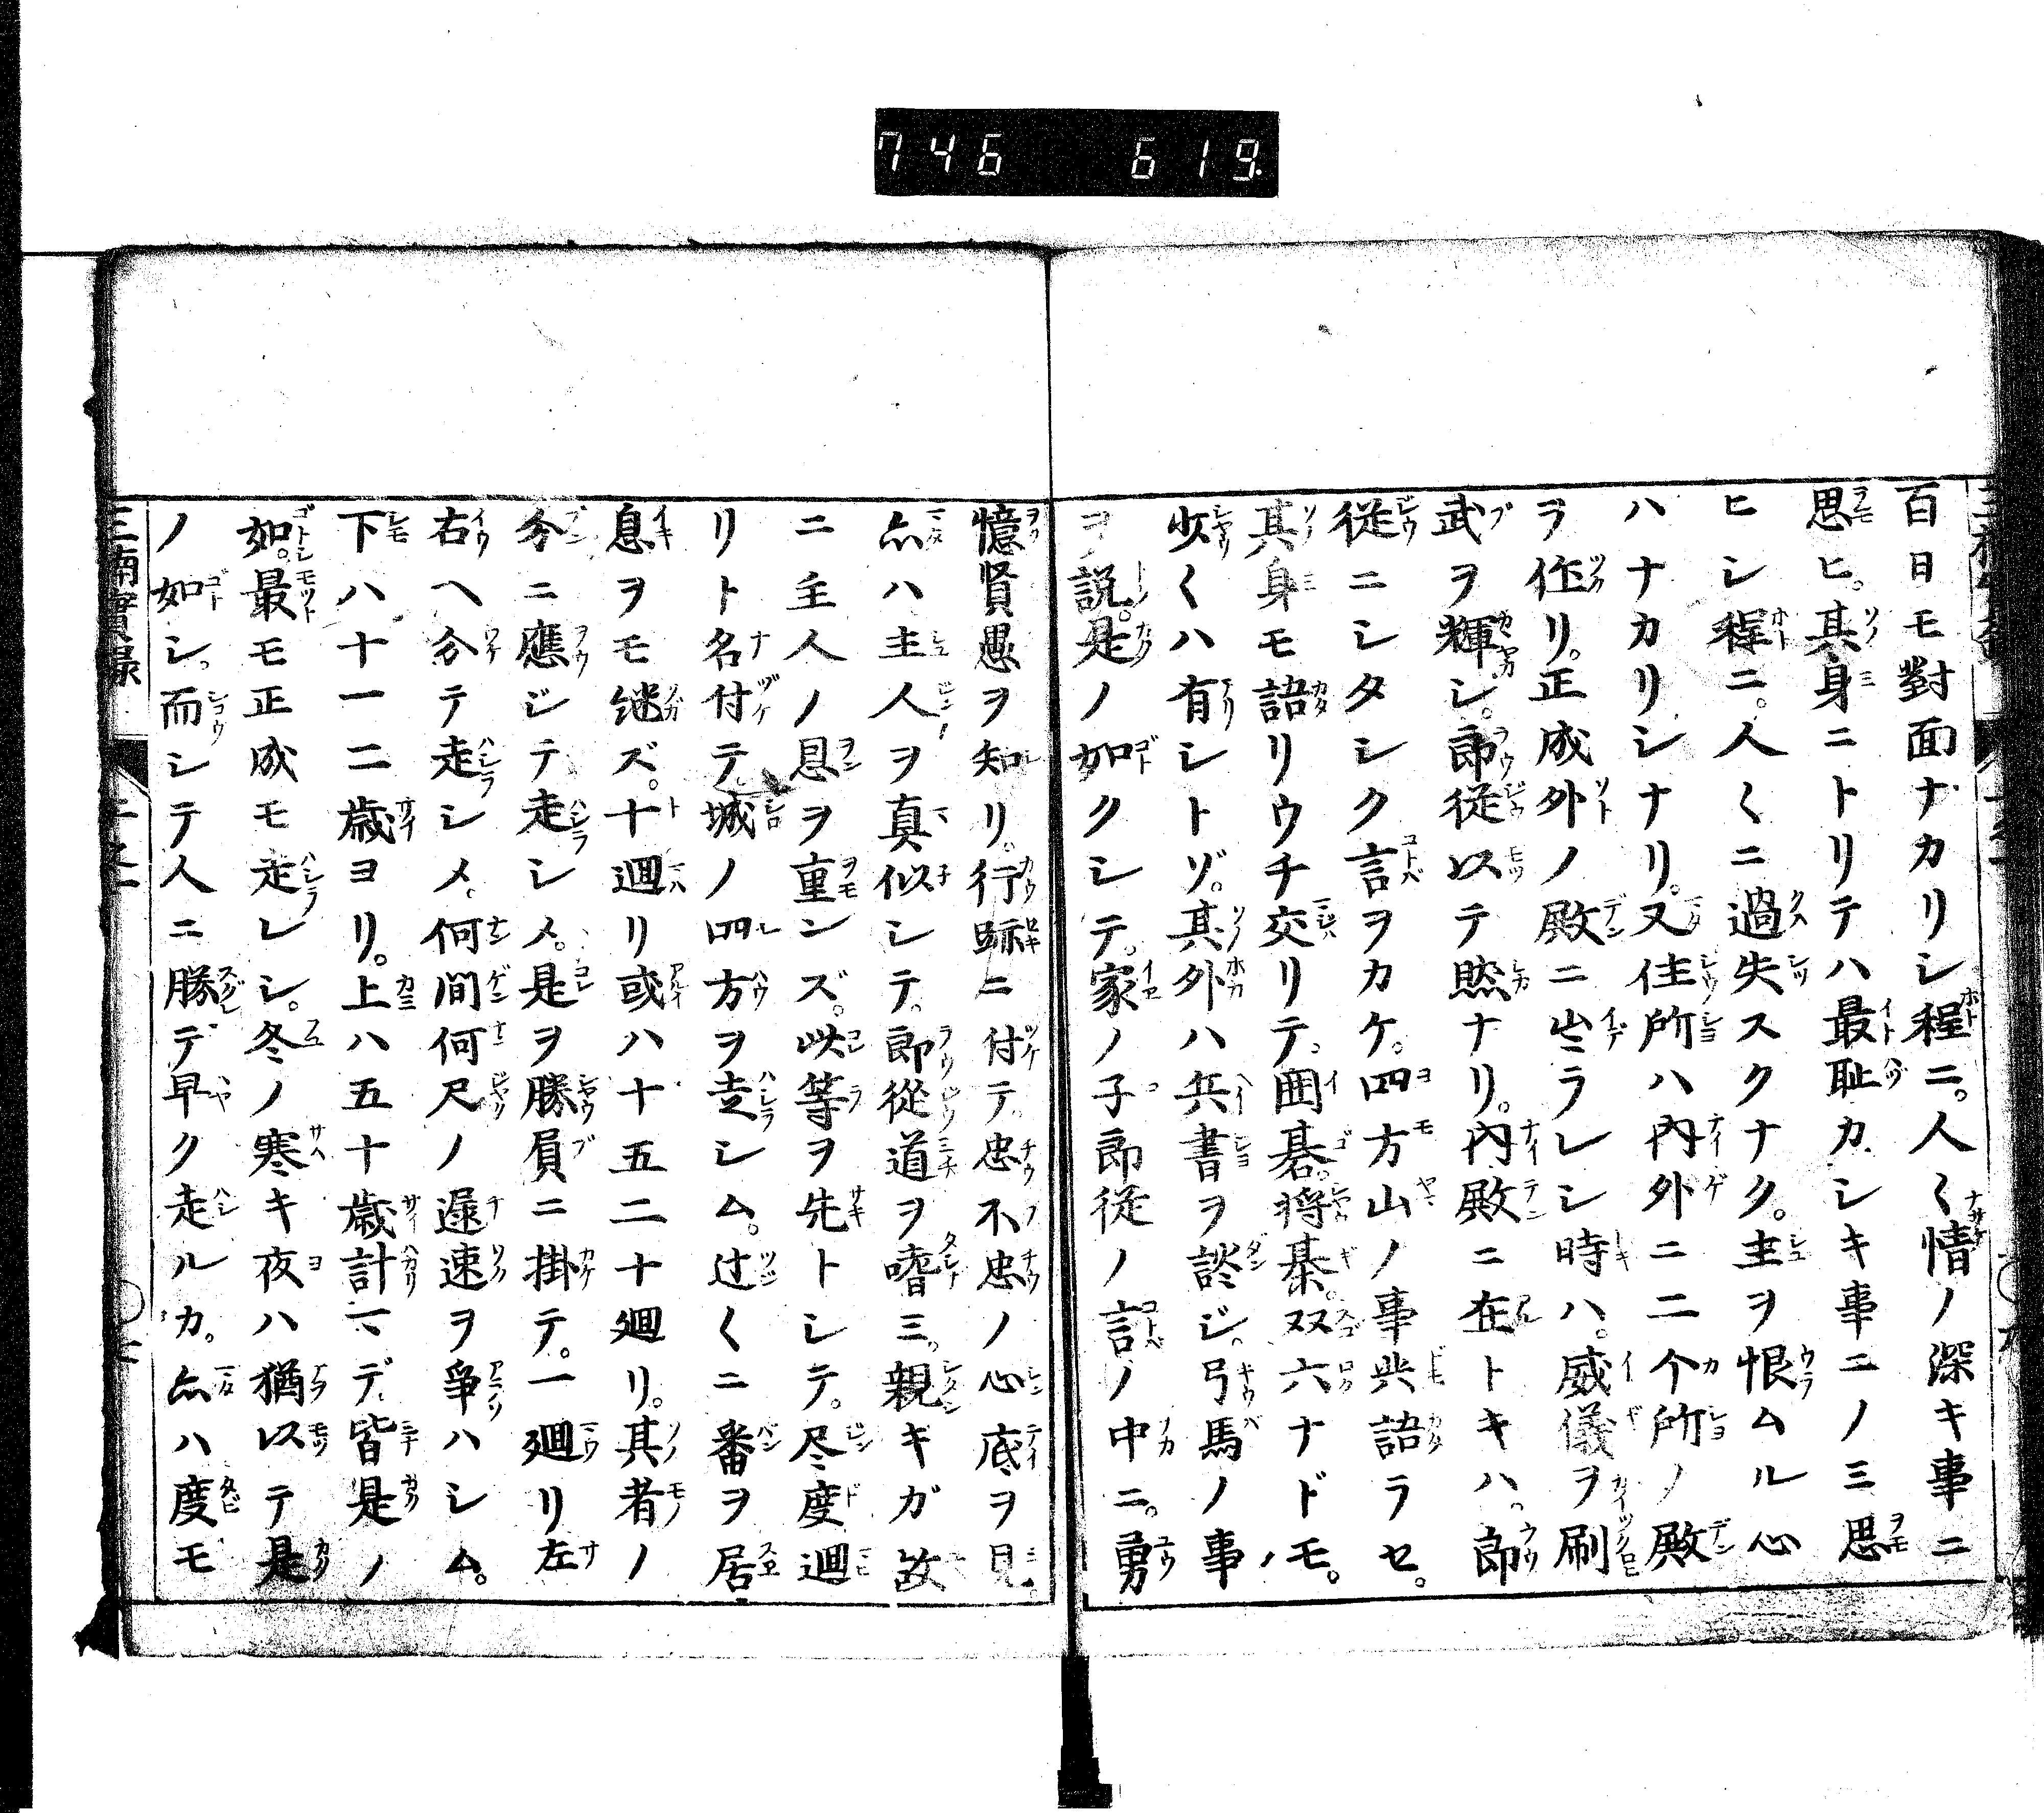 746 619.
百日モ對面ナカリシ程ニ。人〱情ノ深キ事ニ
思ヒ。其身ニトリテハ最恥カシキ事ニノミ思
ヒシ程ニ。人〱ニ過失スクナク。主ヲ恨ムル心
ハナカリシナリ。又住所ハ內外ニ二个所ノ殿
ヲ作リ。正成外ノ殿ニ出ラレシ時ハ。威儀ヲ刷
武ヲ輝シ。郎従以テ然ナリ。內殿ニ在トキハ。郎
従ニシタシク言ヲカケ。四方山ノ事共語ラセ。
其身モ語リウチ交リテ。囲碁。將棊。双六ナドモ。
少〱ハ有シトゾ。其外ハ兵書ヲ談ジ。弓馬ノ事
ヲ説。是ノ如クシテ。家ノ子郎従ノ言ノ中ニ。勇
憶賢愚ヲ知リ。行跡ニ付テ。忠不忠ノ心底ヲ見。
亦ハ主人ヲ真似シテ。郎從道ヲ嗜ミ。親ギガ故
ニ主人ノ恩ヲ重ンズ。此等ヲ先トシテ。尽度廻
リト名付テ。城ノ四方ヲ走シム。辻〱ニ番ヲ居
息ヲモ継ズ。十廻リ或ハ十五二十廻リ。其者ノ
分ニ應ジテ走シメ。是ヲ勝負ニ掛テ。一廻リ左
右ヘ分テ走シメ。何間何尺ノ遅速ヲ爭ハシム。
下ハ十一二歳ヨリ。上ハ五十歳計マデ。皆是ノ
如。最モ正成モ走レシ。冬ノ寒キ夜ハ猶以テ是
ノ如シ。而シテ人ニ勝テ早ク走ルカ。亦ハ度モ